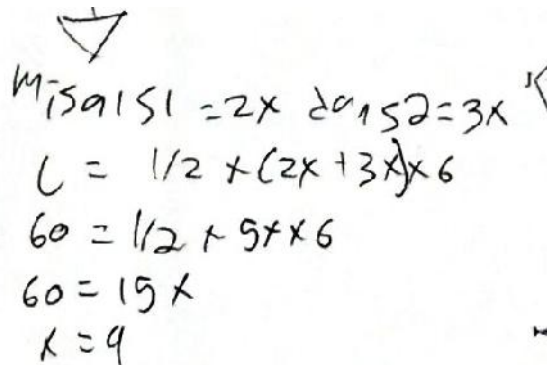 Misal S1 = 2x dan S2 = 3x
L = 1/2 x (2x + 3x) x 6
60 = 1/2 x 5x x 6
60 = 15x
x = 4